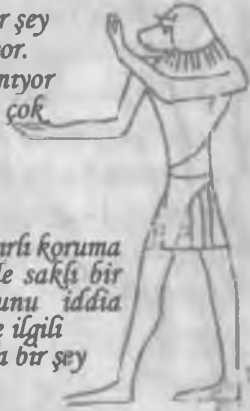 r şey
yor.
nıyor
çok
ırlı koruma
le saklı bir
unu iddia
e ilgili
a bir şey